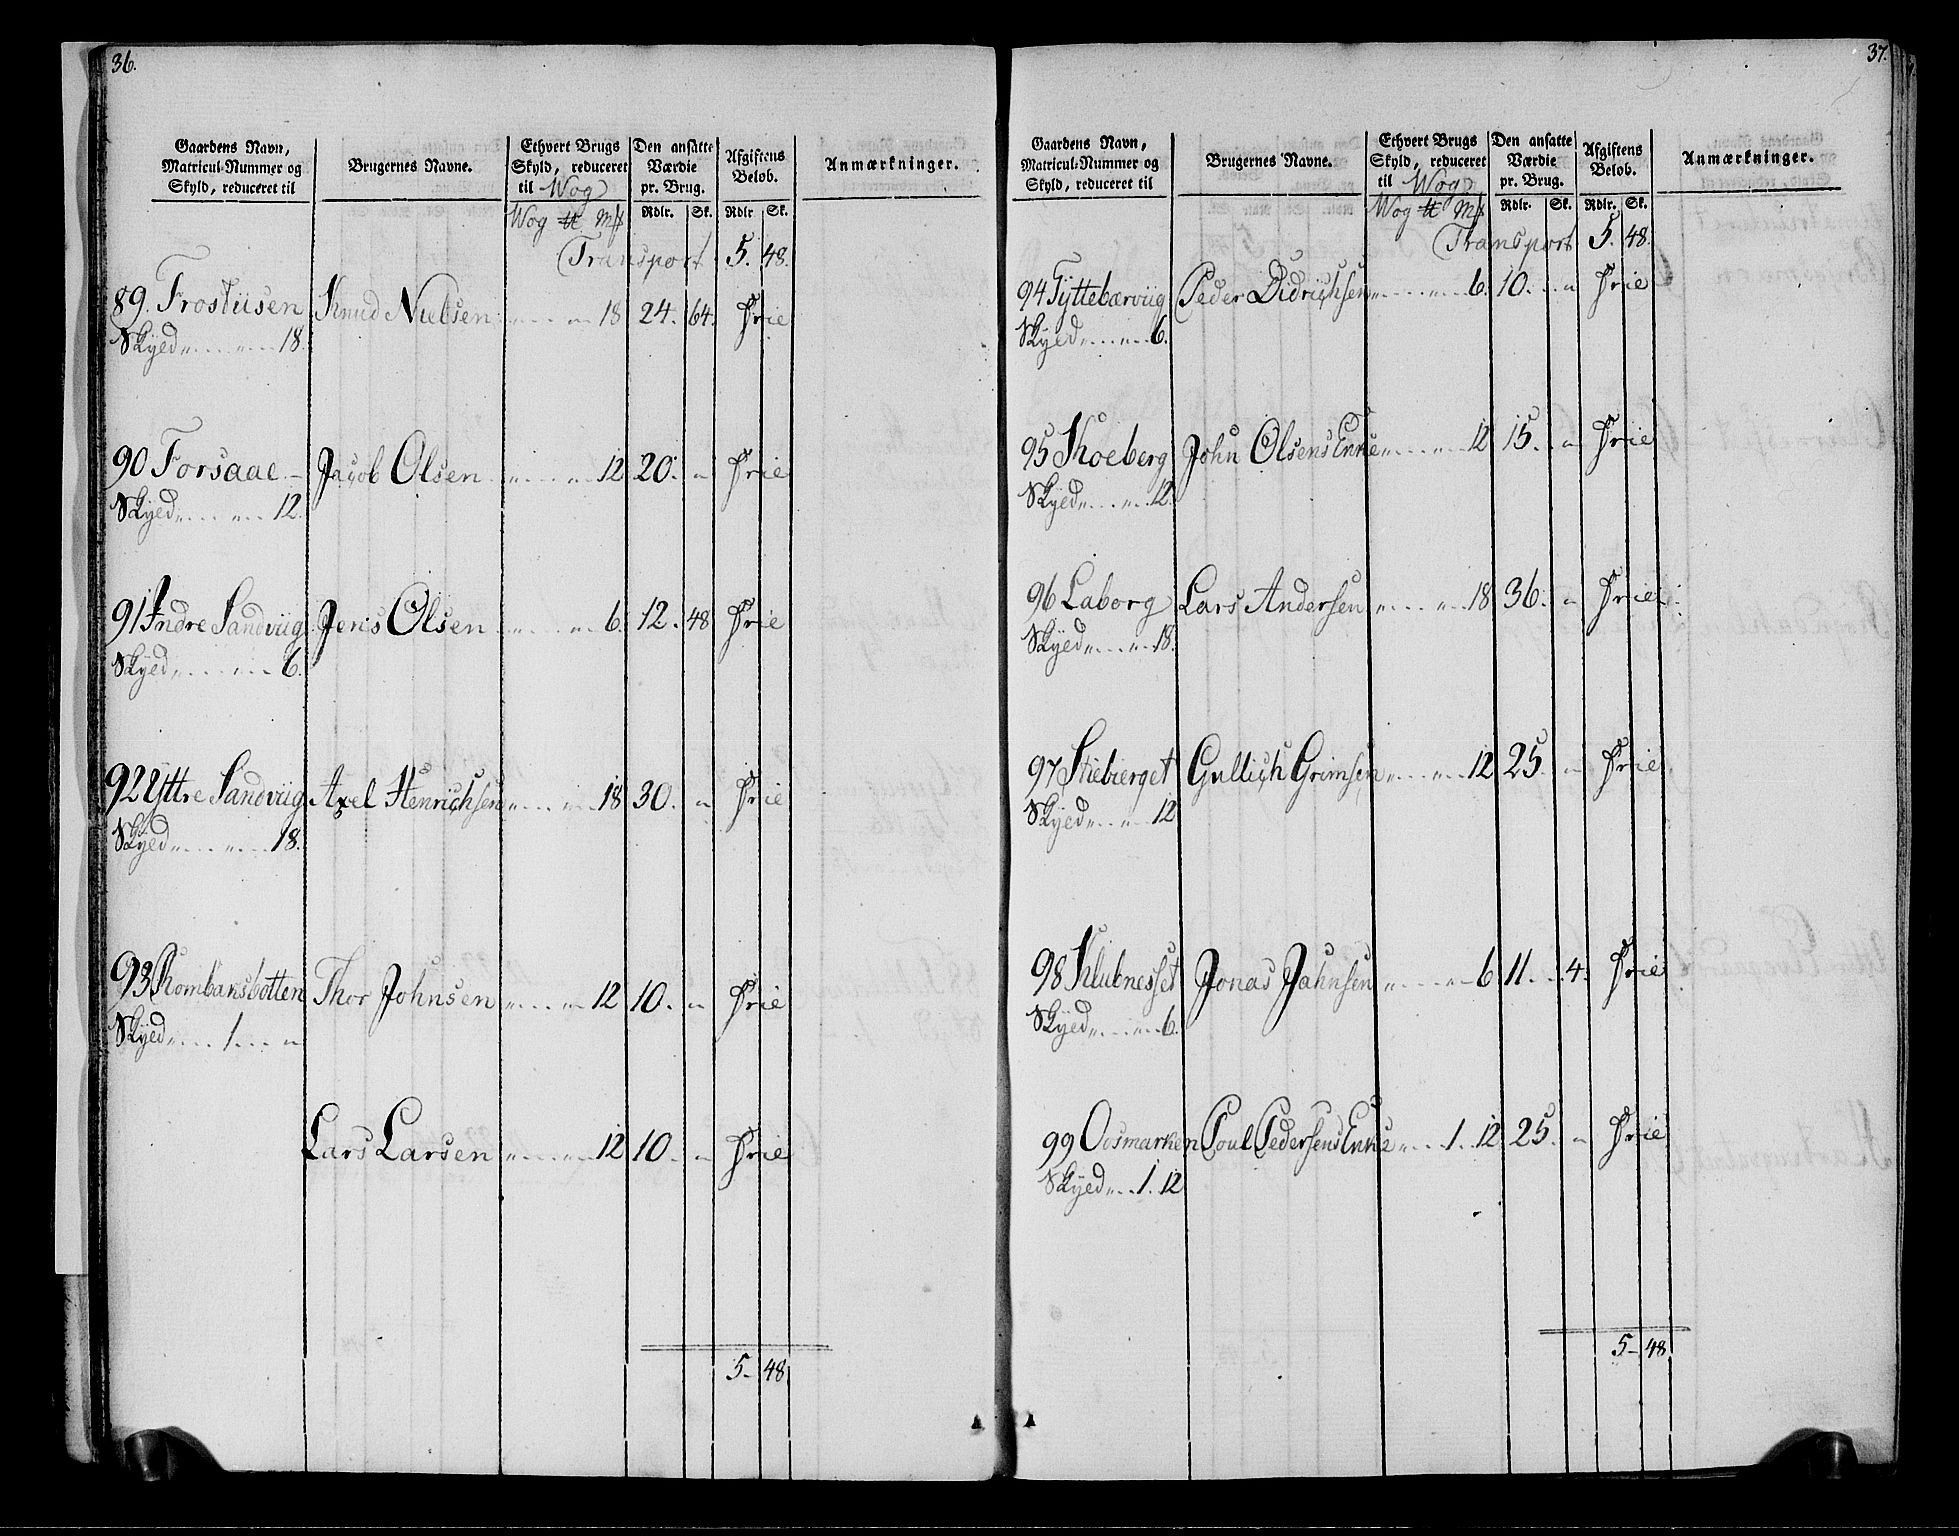 36.
Gaardens Navn, Matricul-Nummer og Skyld, reduceret til
Brugernes Navne.
Ethvert Brugs Skyld, reduceret til Wog
Den ansatte Værdie pr. Brug.
Afgiftens Beløb.
Anmærkninger.
Wog ℔ Mk Rdlr. Sk. Rdlr Sk.
Transport 5. 48.
89. Frostiisen Knud Nielsen 18 24. 64. Frie
Skyed 18.
90 Forsaae Jacob Olsen 12 20. " Frie
Skyed 12.
91 Indre Sandviig Jens Olsen 6. 12. 48 Frie
Skyed 6.
92 Yttre Sandviig Axel Henrichsen 18 30. " Frie
Skyed 18.
93 Rombaksbotten Thor Johnsen 12 10. " Frie
Skyed 1. "
Lars Larsen 12 10. " Frie
5 – 48
37.
Gaardens Navn, Matricul-Nummer og Skyld, reduceret til
Brugernes Navne.
Ethvert Brugs Skyld, reduceret til Wog
Den ansatte Værdie pr. Brug.
Afgiftens Beløb.
Anmærkninger.
Wog ℔ Mk Rdlr. Sk. Rdlr. Sk.
Transport 5. 48.
94 Tyttebærviig Peder Didrichsen 6. 10. " Frie
Skyed 6.
95 Skoeberg John Olsens Enke 12 15. " Frie
Skyed 12.
96 Laborg Lars Andersen 18 36. " Frie
Skyed 18.
97 Stiebierget Gullich Grimsen 12 25. " Frie
Skyed 12
98 Klubnesset Jonas Jahnsen 6 11. 4. Frie
Skyed 6.
99 Oosmarken Poul Pedersens Enke 1. 12 25. " Frie
Skyed 1. 12
5 – 48